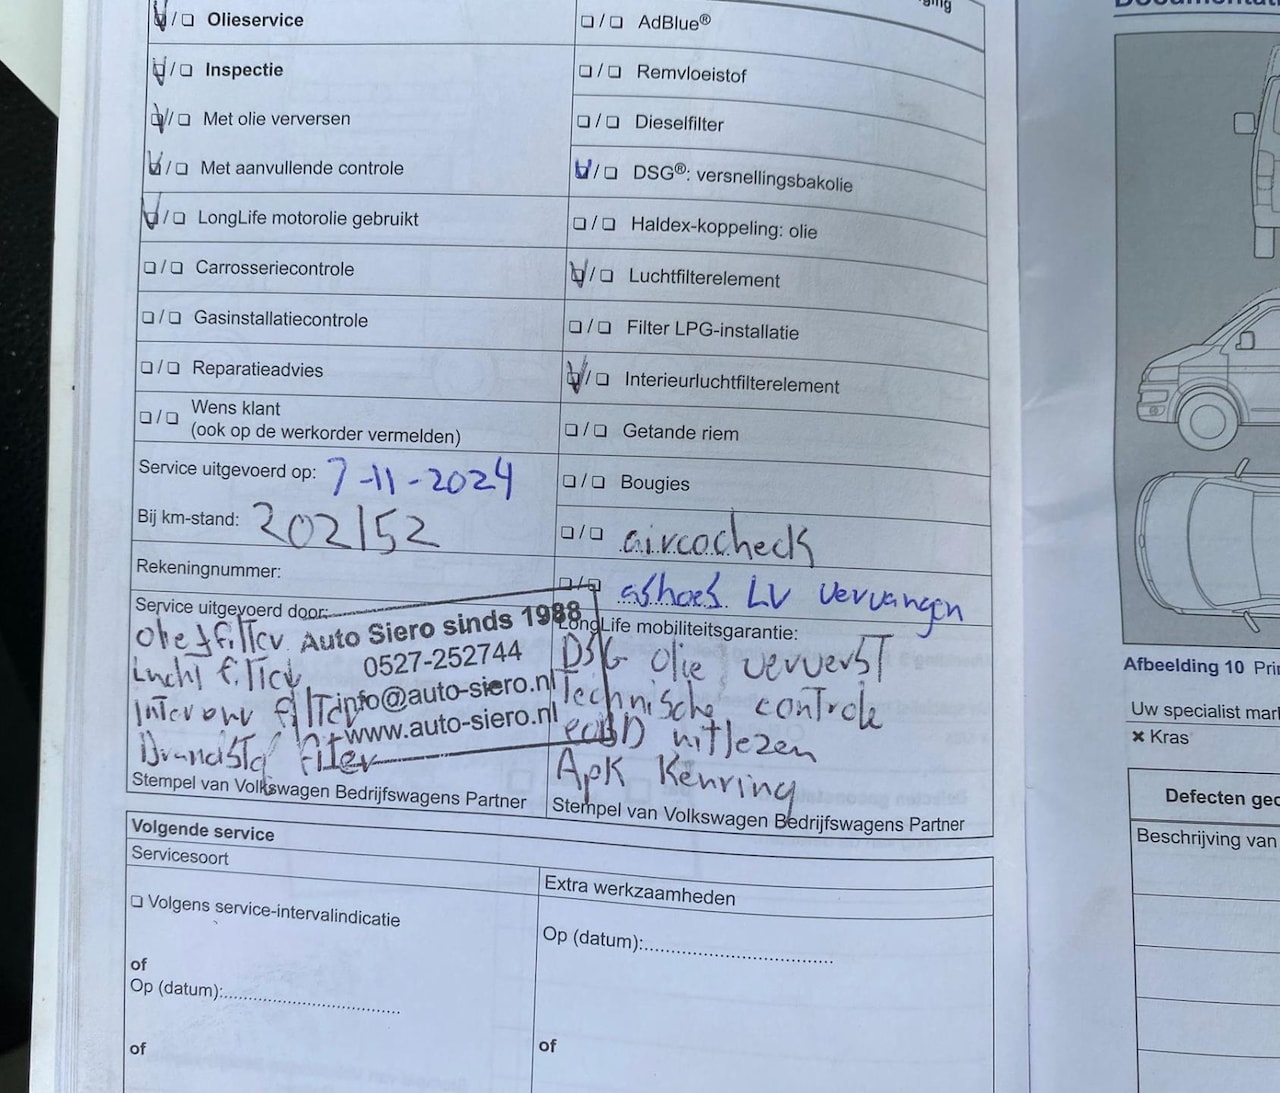 ☑/❏ Olieservice
☑/❏ Inspectie
☑/❏ Met olie verversen
☑/❏ Met aanvullende controle
☑/❏ LongLife motorolie gebruikt
❏/❏ Carrosseriecontrole
❏/❏ Gasinstallatiecontrole
❏/❏ Reparatieadvies
❏/❏ Wens klant
(ook op de werkorder vermelden)
Service uitgevoerd op: 7-11-2024
Bij km-stand: 202152
Rekeningnummer:
Service uitgevoerd door:
filter
Lucht filter
filter
filter
Auto Siero sinds 1988
0527-252744
info@auto-siero.nl
www.auto-siero.nl
Stempel van Volkswagen Bedrijfswagens Partner
❏/❏ AdBlue®
❏/❏ Remvloeistof
❏/❏ Dieselfilter
☑/❏ DSG®: versnellingsbakolie
❏/❏ Haldex-koppeling: olie
☑/❏ Luchtfilterelement
❏/❏ Filter LPG-installatie
☑/❏ Interieurluchtfilterelement
❏/❏ Getande riem
❏/❏ Bougies
❏/❏ aircocheck
❏/❏ ashoes LV vervangen
LongLife mobiliteitsgarantie:
DSG olie ververst
Technische controle
uitlezen
Apk Kenring
Stempel van Volkswagen Bedrijfswagens Partner
Volgende service
Servicesoort
❏ Volgens service-intervalindicatie
of
Op (datum):
of
Extra werkzaamheden
Op (datum):
of
Afbeelding 10
Uw specialist
✖ Kras
Defecten
Beschrijving van